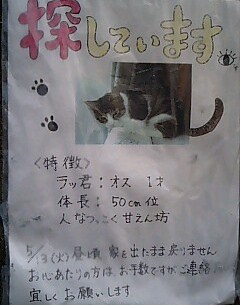 探しています
<特徴>
ラッ君：オス 1才
体長：50cm位
人なつっこく甘えん坊
5/13(火)昼頃 家を出たまま戻りません
お心あたりの方は、お手数ですがご連絡
宜しくお願いします